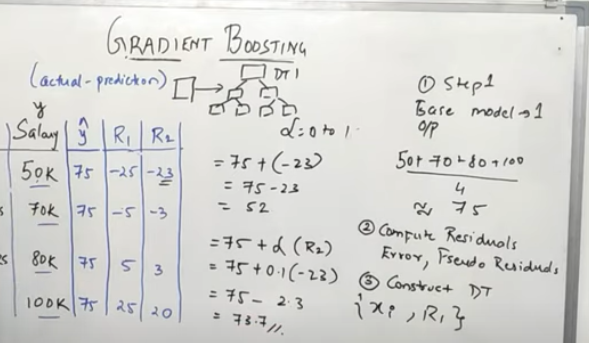 GRADIENT BOOSTING
(actual-prediction)
DT1
α = 0 to 1
y
Salary ŷ R1 R2
50K 75 -25 -23
70K 75 -5 -3
80K 75 5 3
100K 75 25 20
= 75 + (-23)
= 75 - 23
= 52
= 75 + α (R2)
= 75 + 0.1 (-23)
= 75 - 2.3
= 73.7 //
① Step 1
Base model → 1
o/p
50 + 70 + 80 + 100
4
≈ 75
② Compute Residuals
Error, Pseudo Residuals
③ Construct DT
{xi, R1}